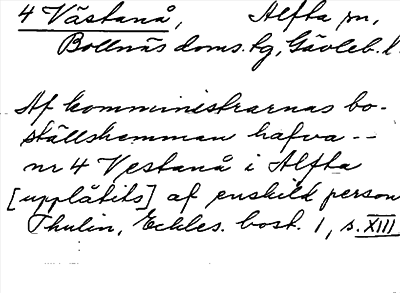 4 Västanå, Alfta sn,
Bollnäs doms.tg, Gävleb. l.
Af komministrarnas bo-
ställshemman hafva --
nr 4 Vestanå i Alfta
[upplåtits] af enskild person
Thulin, Eckles. bost. 1, s. XIII